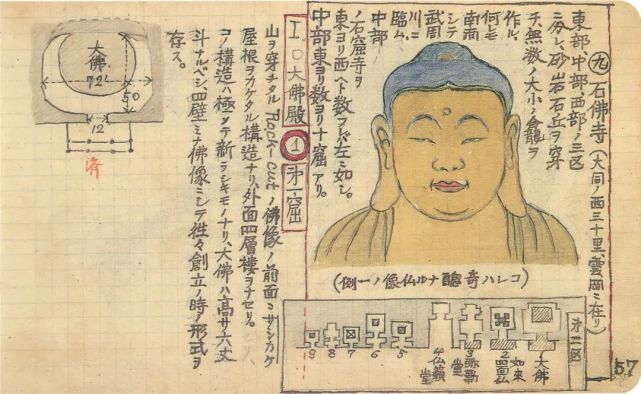 ㊈石佛寺（大同ノ西三十里、雲岡ニ在リ）
東部中部西部ノ三区
ニ分レ、砂岩石丘ヲ穿
チ、無数ノ大小ノ龕ヲ
作ル、
何モ
南面
シテ
武周
川ニ
臨ム、
中部
ノ石窟寺ヲ
東ヨリ西ヘト数フレバ左ニ如シ。
中部東ヨリ数ヨリ十窟アリ。
（コレハ奇醜ナル仏像ノ一例）
第二区
大佛
如来
2 四面仏
3 弥勒堂
4 仏籟堂
5
6
7
8
9
57
I.○大佛殿 ① 第一窟
山ヲ穿チタル Rock-cut ノ佛像ノ前面ニサシカケ
屋根ヲカケタル構造ナリ、外面四層楼ヲナセリ。
コノ構造ハ極メテ新ラシキモノナリ、大佛ハ高サ六丈
斗ナルベシ、四壁ミナ佛像ミシテ往々創立ノ時ノ形式ヲ
存ス。
大佛
72'
50
12
済